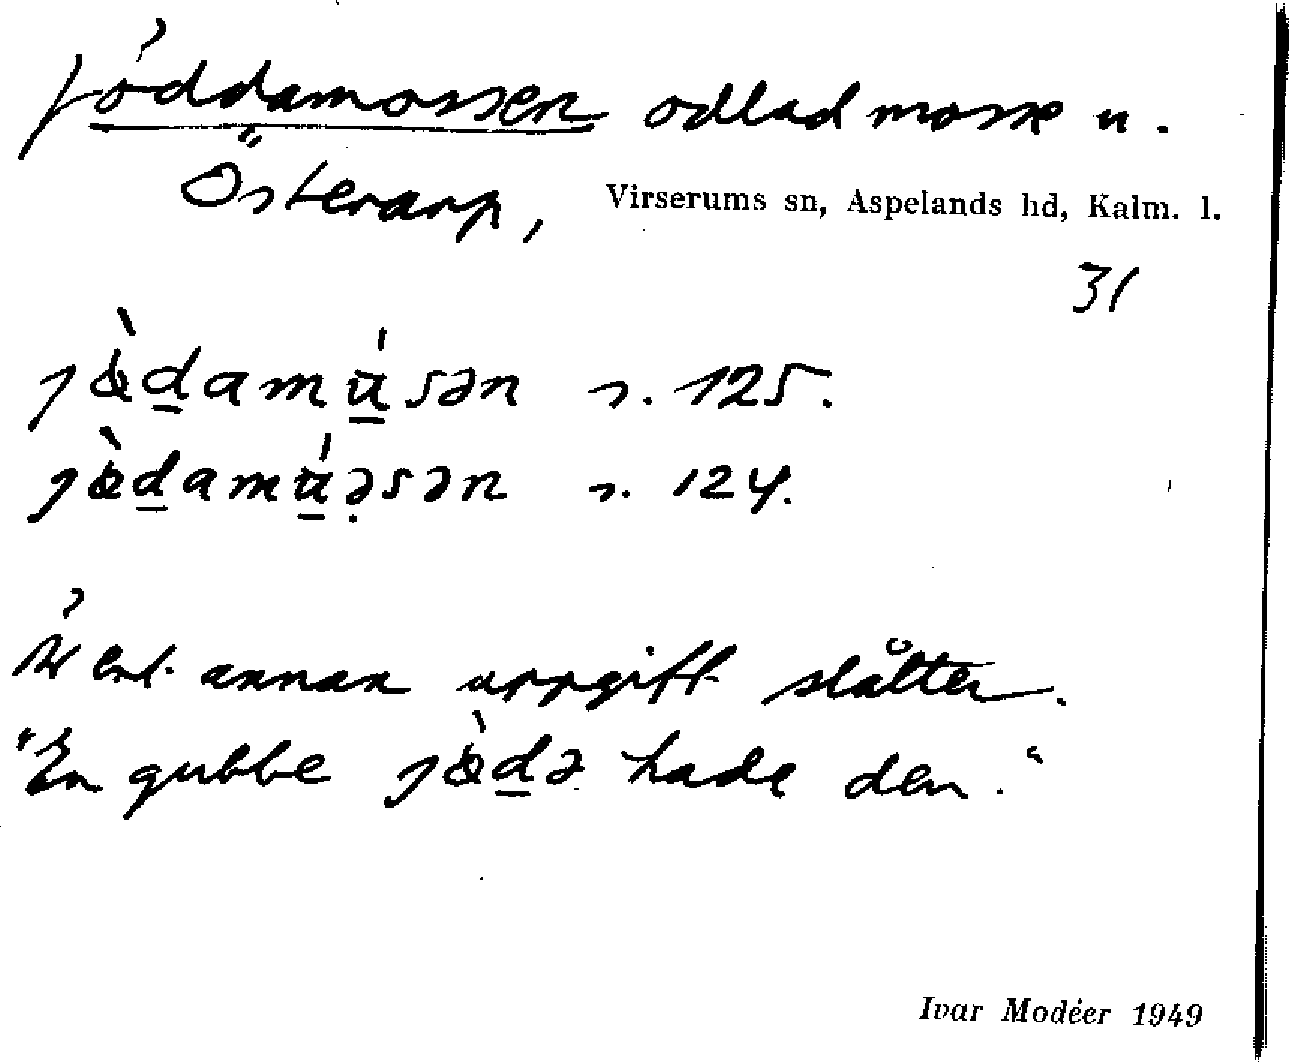 Jöddamossen odlad mosse u.
Österarp, Virserums sn, Aspelands hd, Kalm. l.
31
jɵ̀d̲amú̲sən s. 125.
jɵ̀d̲amú̲ə̣sən s. 124.
Är enl. annan uppgift slåtter.
"En gubbe jɵ̀d̲ə hade den."
Ivar Modéer 1949